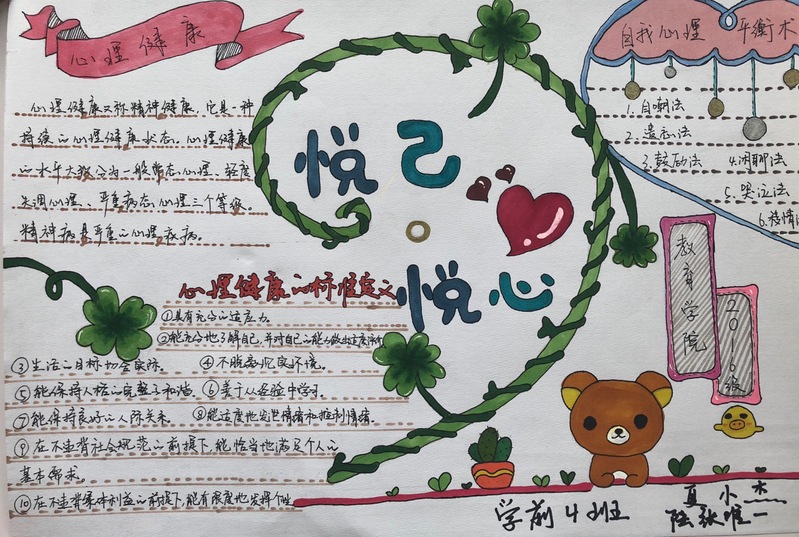 心理健康
心理健康又称精神健康，它是一种
持续的心理健康状态。心理健康
的水平大致分为一般常态心理、轻度
失调心理、严重病态心理三个等级。
精神病是严重的心理疾病。
悦己
悦心
自我心理平衡术
1. 自嘲法
2. 遗忘法
3. 鼓励法 4. 闲聊法
5. 哭泣法
6.
心理健康的标准定义
①具有充分的适应力。
②能充分地了解自己，并对自己的能力做出适度评价
③生活的目标切合实际。 ④不脱离现实环境。
⑤能保持人格的完整与和谐。 ⑥善于从经验中学习。
⑦能保持良好的人际关系。 ⑧能适度地发泄情绪和控制情绪。
⑨在不违背社会规范的前提下，能恰当地满足个人的
基本需求。
⑩在不违背集体利益的前提下，能有限度地发挥个性
教育学院
2016级
学前4班
夏小杰
陆张唯一